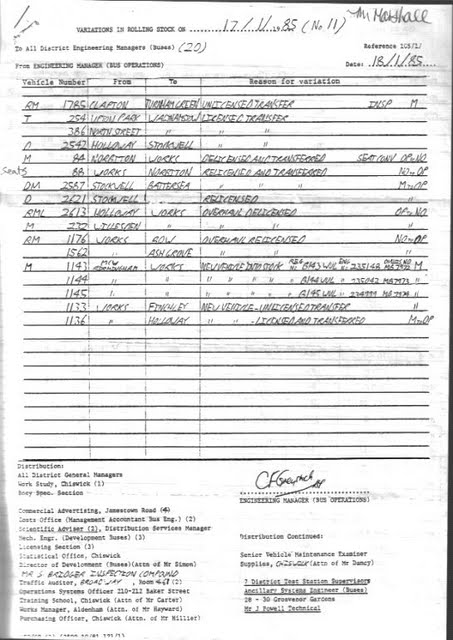 Mr Marshall
VARIATIONS IN ROLLING STOCK ON 17/1/1985 (No 11)
To All District Engineering Managers (Buses) (20)
Reference 105/1/
From ENGINEERING MANAGER (BUS OPERATIONS)
Date: 18/1/85
Vehicle Number From To Reason for variation
RM 1785 CLAPTON TURNHAM GREEN UNLICENSED TRANSFER INSP M
T 254 UPTON PARK WALTHAMSTOW LICENSED TRANSFER
386 NORTH STREET " "
D 2542 HOLLOWAY STOCKWELL "
M 84 NORBITON WORKS DELICENSED AND TRANSFERRED SEAT CONV OP to NO
Seats 88 WORKS NORBITON RELICENSED AND TRANSFERRED NO to OP
DM 2587 STOCKWELL BATTERSEA " " " M to OP
D 2621 STOCKWELL RELICENSED "
RML 2613 HOLLOWAY WORKS OVERHAUL DELICENSED OP to NO
M 232 WILLESDEN " " "
RM 1176 WORKS BOW OVERHAUL RELICENSED NO to OP
1562 " ASH GROVE " " "
M 1143 MCW BIRMINGHAM WORKS NEW VEHICLE INTO STOCK REG No B143 WUL ENG No 235148 MA7975 M
1144 " " " " " " B144 WUL " 235042 MA7973 "
1145 " " " " " " B145 WUL " 234999 MA7974 "
1133 WORKS FINCHLEY NEW VEHICLE - UNLICENSED TRANSFER "
1136 " HOLLOWAY " " - LICENSED AND TRANSFERRED M to OP
Distribution:
All District General Managers
Work Study, Chiswick (1)
Body Spec. Section
ENGINEERING MANAGER (BUS OPERATIONS)
Commercial Advertising, Jamestown Road (4)
Costs Office (Management Accountant Bus Eng.) (2)
Scientific Adviser (2), Distribution Services Manager
Mech. Engr. (Development Buses) (3)
Licensing Section (3)
Statistical Office, Chiswick
Director of Development (Buses)(attn of Mr Simon)
MR S BRIDGER INSPECTION COMPOUND
Traffic Auditor, BROADWAY, Room 468 (2)
Operations Systems Officer 210-211 Baker Street
Training School, Chiswick (attn of Mr Carter)
Works Manager, Aldenham (Attn. of Mr Hayward)
Purchasing Officer, Chiswick (Attn. of Mr Hillier)
Distribution Continued:
Senior Vehicle Maintenance Examiner
Supplies, CHISWICK (Attn of Mr Dumcy)
7 District Test Station Supervisors
Ancillary Systems Engineer (Buses)
28 - 30 Grosvenor Gardens
Mr J Powell Technical